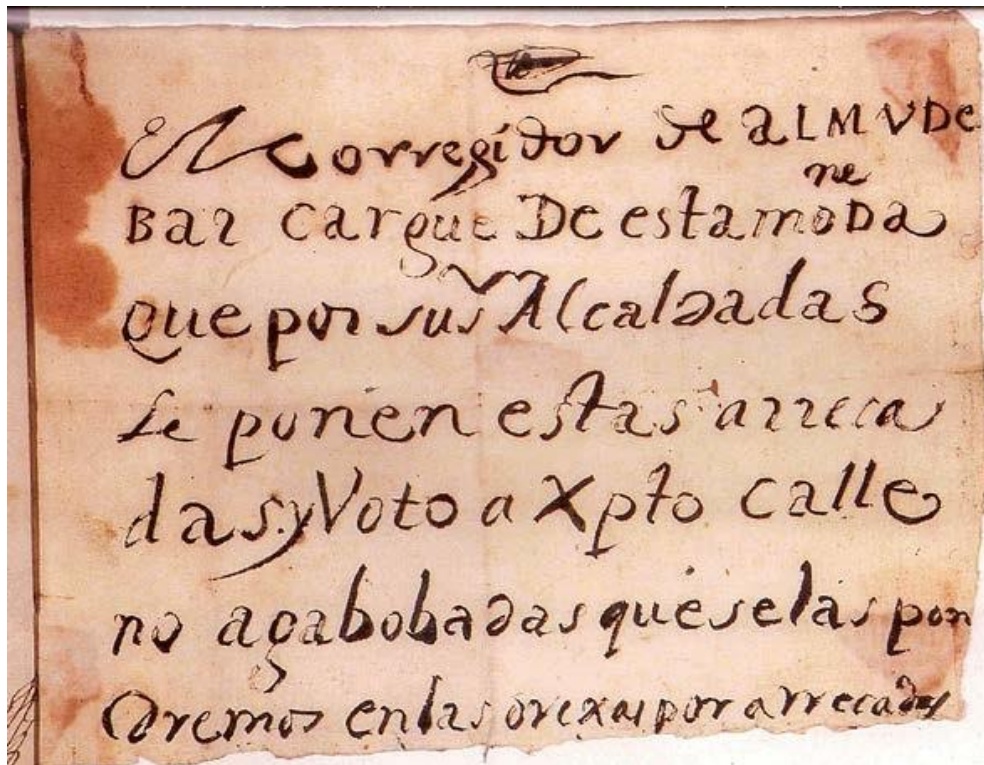 El Corregidor de aLMVDe
ne
Bar Cargue De esta moDa
que por sus Alcaldadas
Le ponen estas arreca
das. y Voto a Xpto calle
no aga bobadas que se las pon
dremos en las orexas por arrecadas